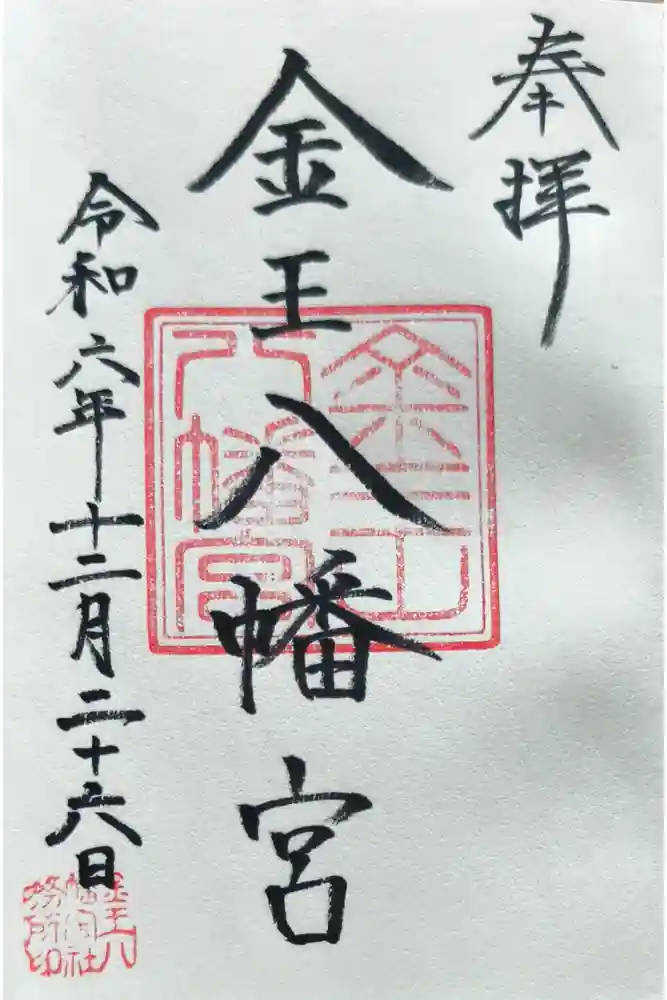 奉拝
金王八幡宮
令和六年十二月二十六日
金王八
幡宮社
務所印